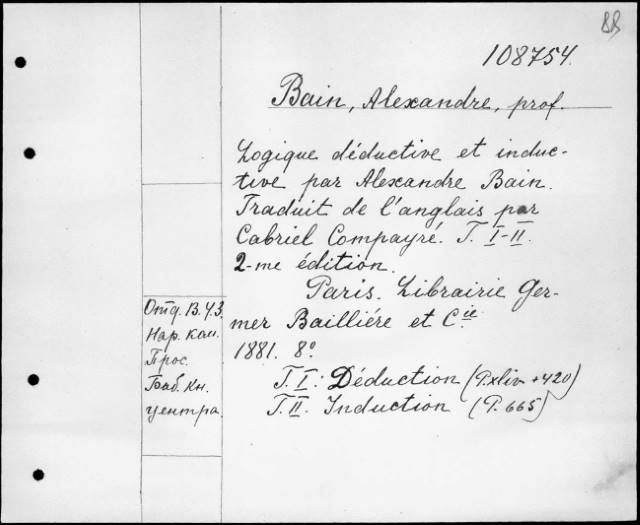 88
108754.
Bain, Alexandre, prof.
Logique déductive et induc-
tive par Alexandre Bain.
Traduit de l'anglais par
Cabriel Compayré. T. I-II.
2-me édition.
Paris. Librairie Ger-
mer Bailliére et Cie
1881. 8º
T. I: Déduction (P. xliv + 420)
T. II. Induction (P. 665)
Отд. В.Ч.З.
Нар. Ком.
Прос.
Баб. Кн.
центра.